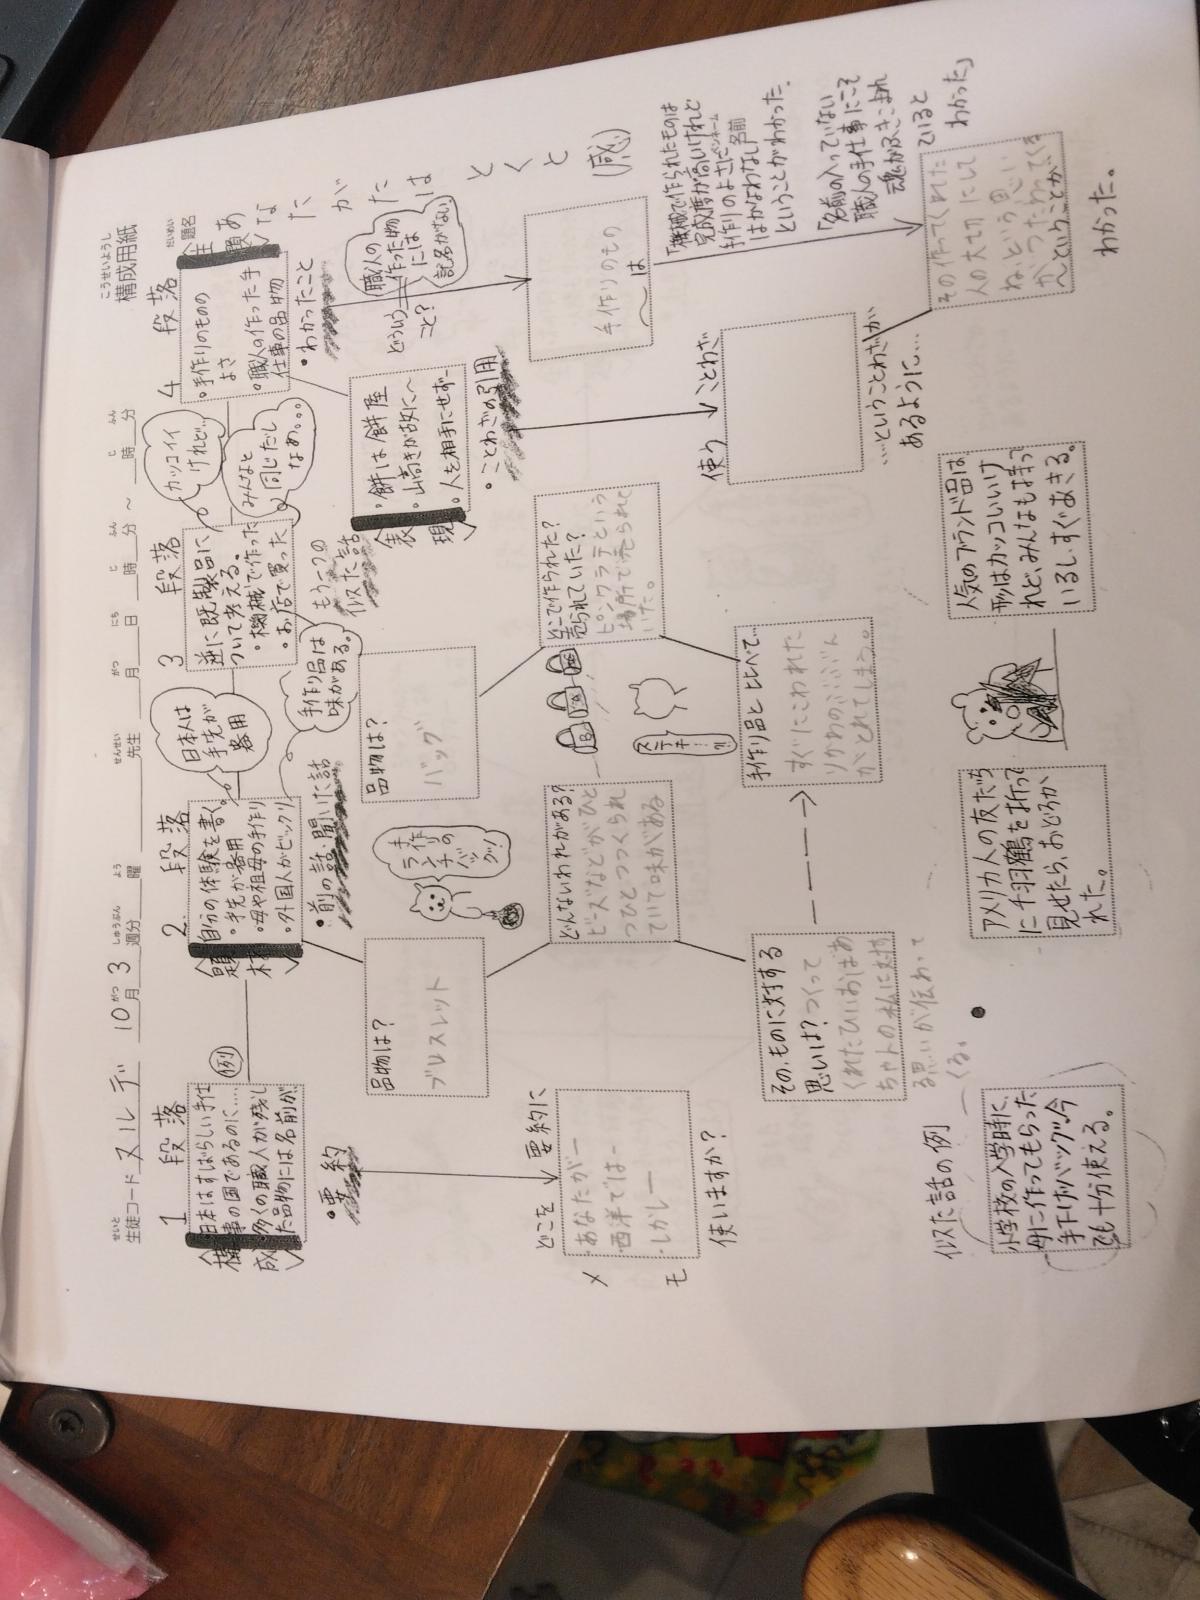 構成用紙
こうせいようし
生徒コード ヌルデ 10月3週分 曜 先生 月 日 時 分 ～ 時 分
せいと がつ しゅうぶん よう せんせい がつ にち じ ふん じ ふん
1
段落
構成
・日本はすばらしい手仕
事の国であるのに……
・多くの職人が残し
た品物には名前が
例
・要約
どこを
要約に
・あなたがー
・西洋ではー
・しかしー
使いますか?
メ
モ
2.
段落
題材
自分の体験を書く。
・手先が器用
・母や祖母の手作り
・外国人がビックリ
日本人は
手先が
器用
・前の話 聞いた話
手作り品は
味がある。
品物は?
ブレスレット
手作
ランチ
のバ
ッグ!
どんないわれがある?
ビーズなどがひと
つひとつつくられ
ていて味がある
その、ものに対する
思いは? つくって
くれたひいおばあ
ちゃんの私に対す
る思いが伝わって
くる。
3
段落
逆に既製品に
ついて考える。
・機械で作った
・お店で買った
カッコイイ
けれど…
みんなと
同じだし
なぁ。。。
もう一つの
似た話
品物は?
バッグ
どこで作られた?
売られていた?
ピンクラテという
場所で売られて
いた。
ステキ……?!
手作り品とくらべて…
すぐにこわれた
りかわのぶぶん
がとれてしまう。
4
段落
題名
だいめい
主題
・手作りのものの
よさ
・職人の作った手
仕事の品物
・わかったこと
あなたがたは
とくと
(感)
どういうこと?
職人の
作った物
には
記名がない
手作りのもの
～は
「機械で作られたものは
完成度が高いけれど
手作りのよさにネーム
はかなわない」名前
ということがわかった。
「名前の入っていない
職人の手仕事にこそ
魂が吹きこまれ
ていると
わかった」
表現
・餅は餅屋
・山高きが故に～
・人を相手にせずー
・ことわざの引用
使う
ことわざ
…ということわざが
あるように…
その作ってくれた
人の大切にして
ねという思い
がつたわってくる
～ということが
わかった。
似た話の例
小学校の入学時に、
母に作ってもらった
手下げバッグ。今
でも十分使える。
アメリカ人の友だち
に千羽鶴を折って
見せたら、おどろか
れた。
人気のブランド品は、
形はカッコいいけ
れど、みんなも持って
いるし、すぐあきる。